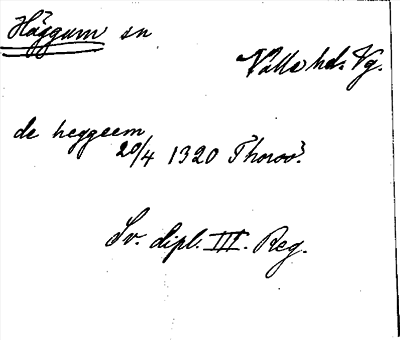 Häggum sn
Valle hd. Vg.
de heggeem
20/4 1320 Thoroo.
Sv. dipl. III. Reg.